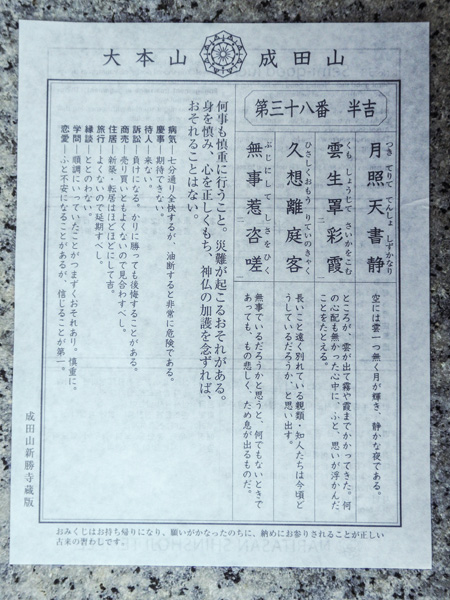 大本山 成田山
第三十八番 半吉
つき てりて てんしょ しずかなり
月照天書静
空には雲一つ無く月が輝き、静かな夜である。
くも しょうじて さいかをこむ
雲生罩彩霞
ところが、雲が出て霧や霞までかかってきた。何
の心配も無かった心中に、ふと、思いが浮かんだ
ことをたとえる。
ひさしくおもう りていのきゃく
久想離庭客
長いこと遠く別れている親類・知人たちは今頃ど
うしているだろうか、と思い出す。
ぶじにして しさをひく
無事惹咨嗟
無事でいるだろうかと思うと、何でもないときで
あっても、もの悲しく、ため息が出るものだ。
何事も慎重に行うこと。災難が起こるおそれがある。
身を慎み、心を正しくもち、神仏の加護を念ずれば、
おそれることはない。
病気―七分通り全快するが、油断すると非常に危険である。
慶事―期待できない。
待人―来ない。
訴訟―負けになる。かりに勝っても後悔することがある。
商売―売り買いともよくないので見合わすべし。
住居―新築・転居はほどほどにして吉。
旅行―よくないので延期すべし。
縁談―ととのわない。
学問―順調にいっていたことがつまずくおそれあり。慎重に。
恋愛―ふと不安になることがあるが、信じることが第一。
成田山新勝寺蔵版
おみくじはお持ち帰りになり、願いがかなったのちに、納めにお参りされることが正しい
古来の習わしです。